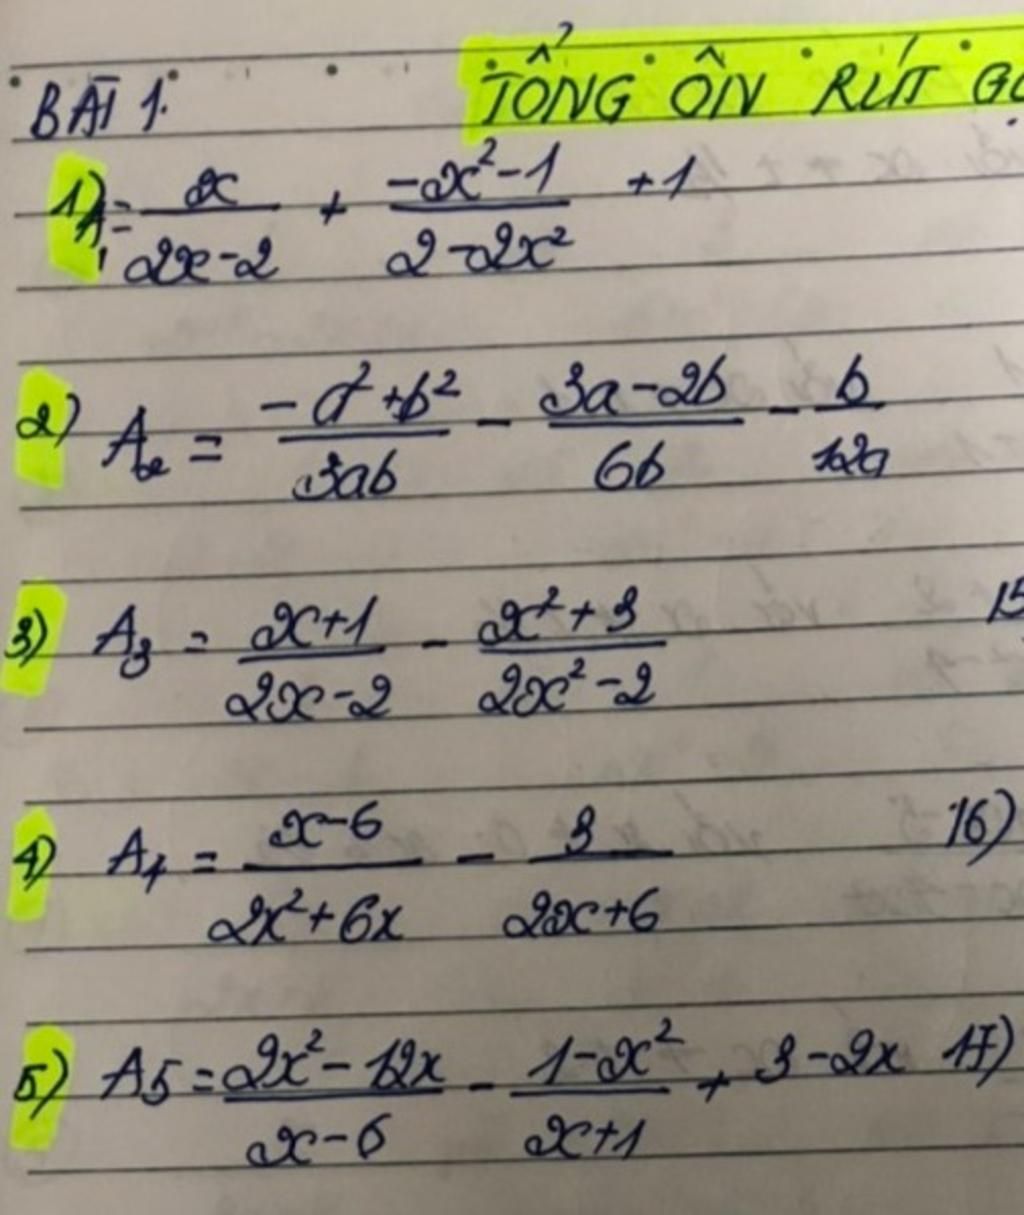 TỔNG ÔN RÚT GỌ
BÀI 1.
1) A₁ = x/(2x-2) + (-x²-1)/(2-2x²) + 1
2) A₂ = (-a²+b²)/(3ab) - (3a-2b)/(6b) - b/(12a)
3) A₃ = (x+1)/(2x-2) - (x²+3)/(2x²-2) 15
4) A₄ = (x-6)/(2x²+6x) - 3/(2x+6) 16)
5) A5 = (2x²-12x)/(x-6) - (1-x²)/(x+1) + 3-2x 17)